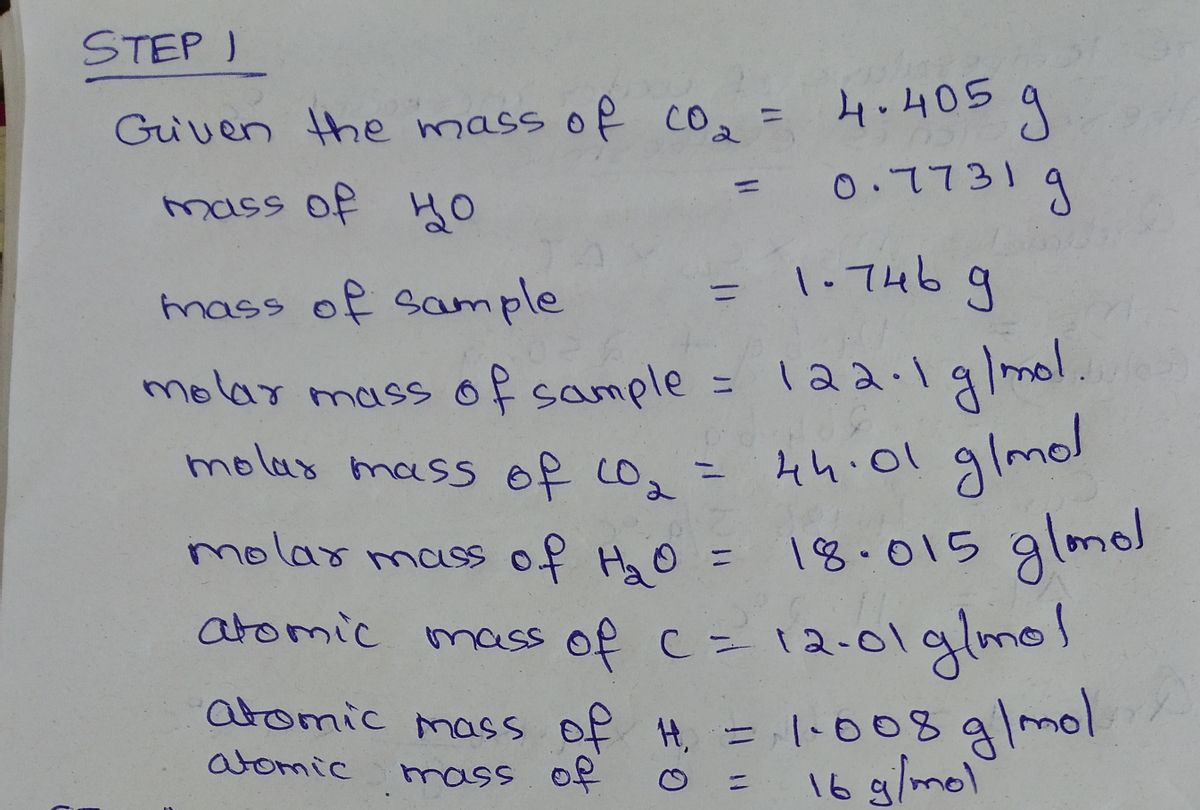 STEP 1
Given the mass of CO2 = 4.405 g
mass of H2O = 0.7731 g
mass of sample = 1.746 g
molar mass of sample = 122.1 g/mol.
molar mass of CO2 = 44.01 g/mol
molar mass of H2O = 18.015 g/mol
atomic mass of C = 12.01 g/mol
atomic mass of H = 1.008 g/mol
atomic mass of O = 16 g/mol